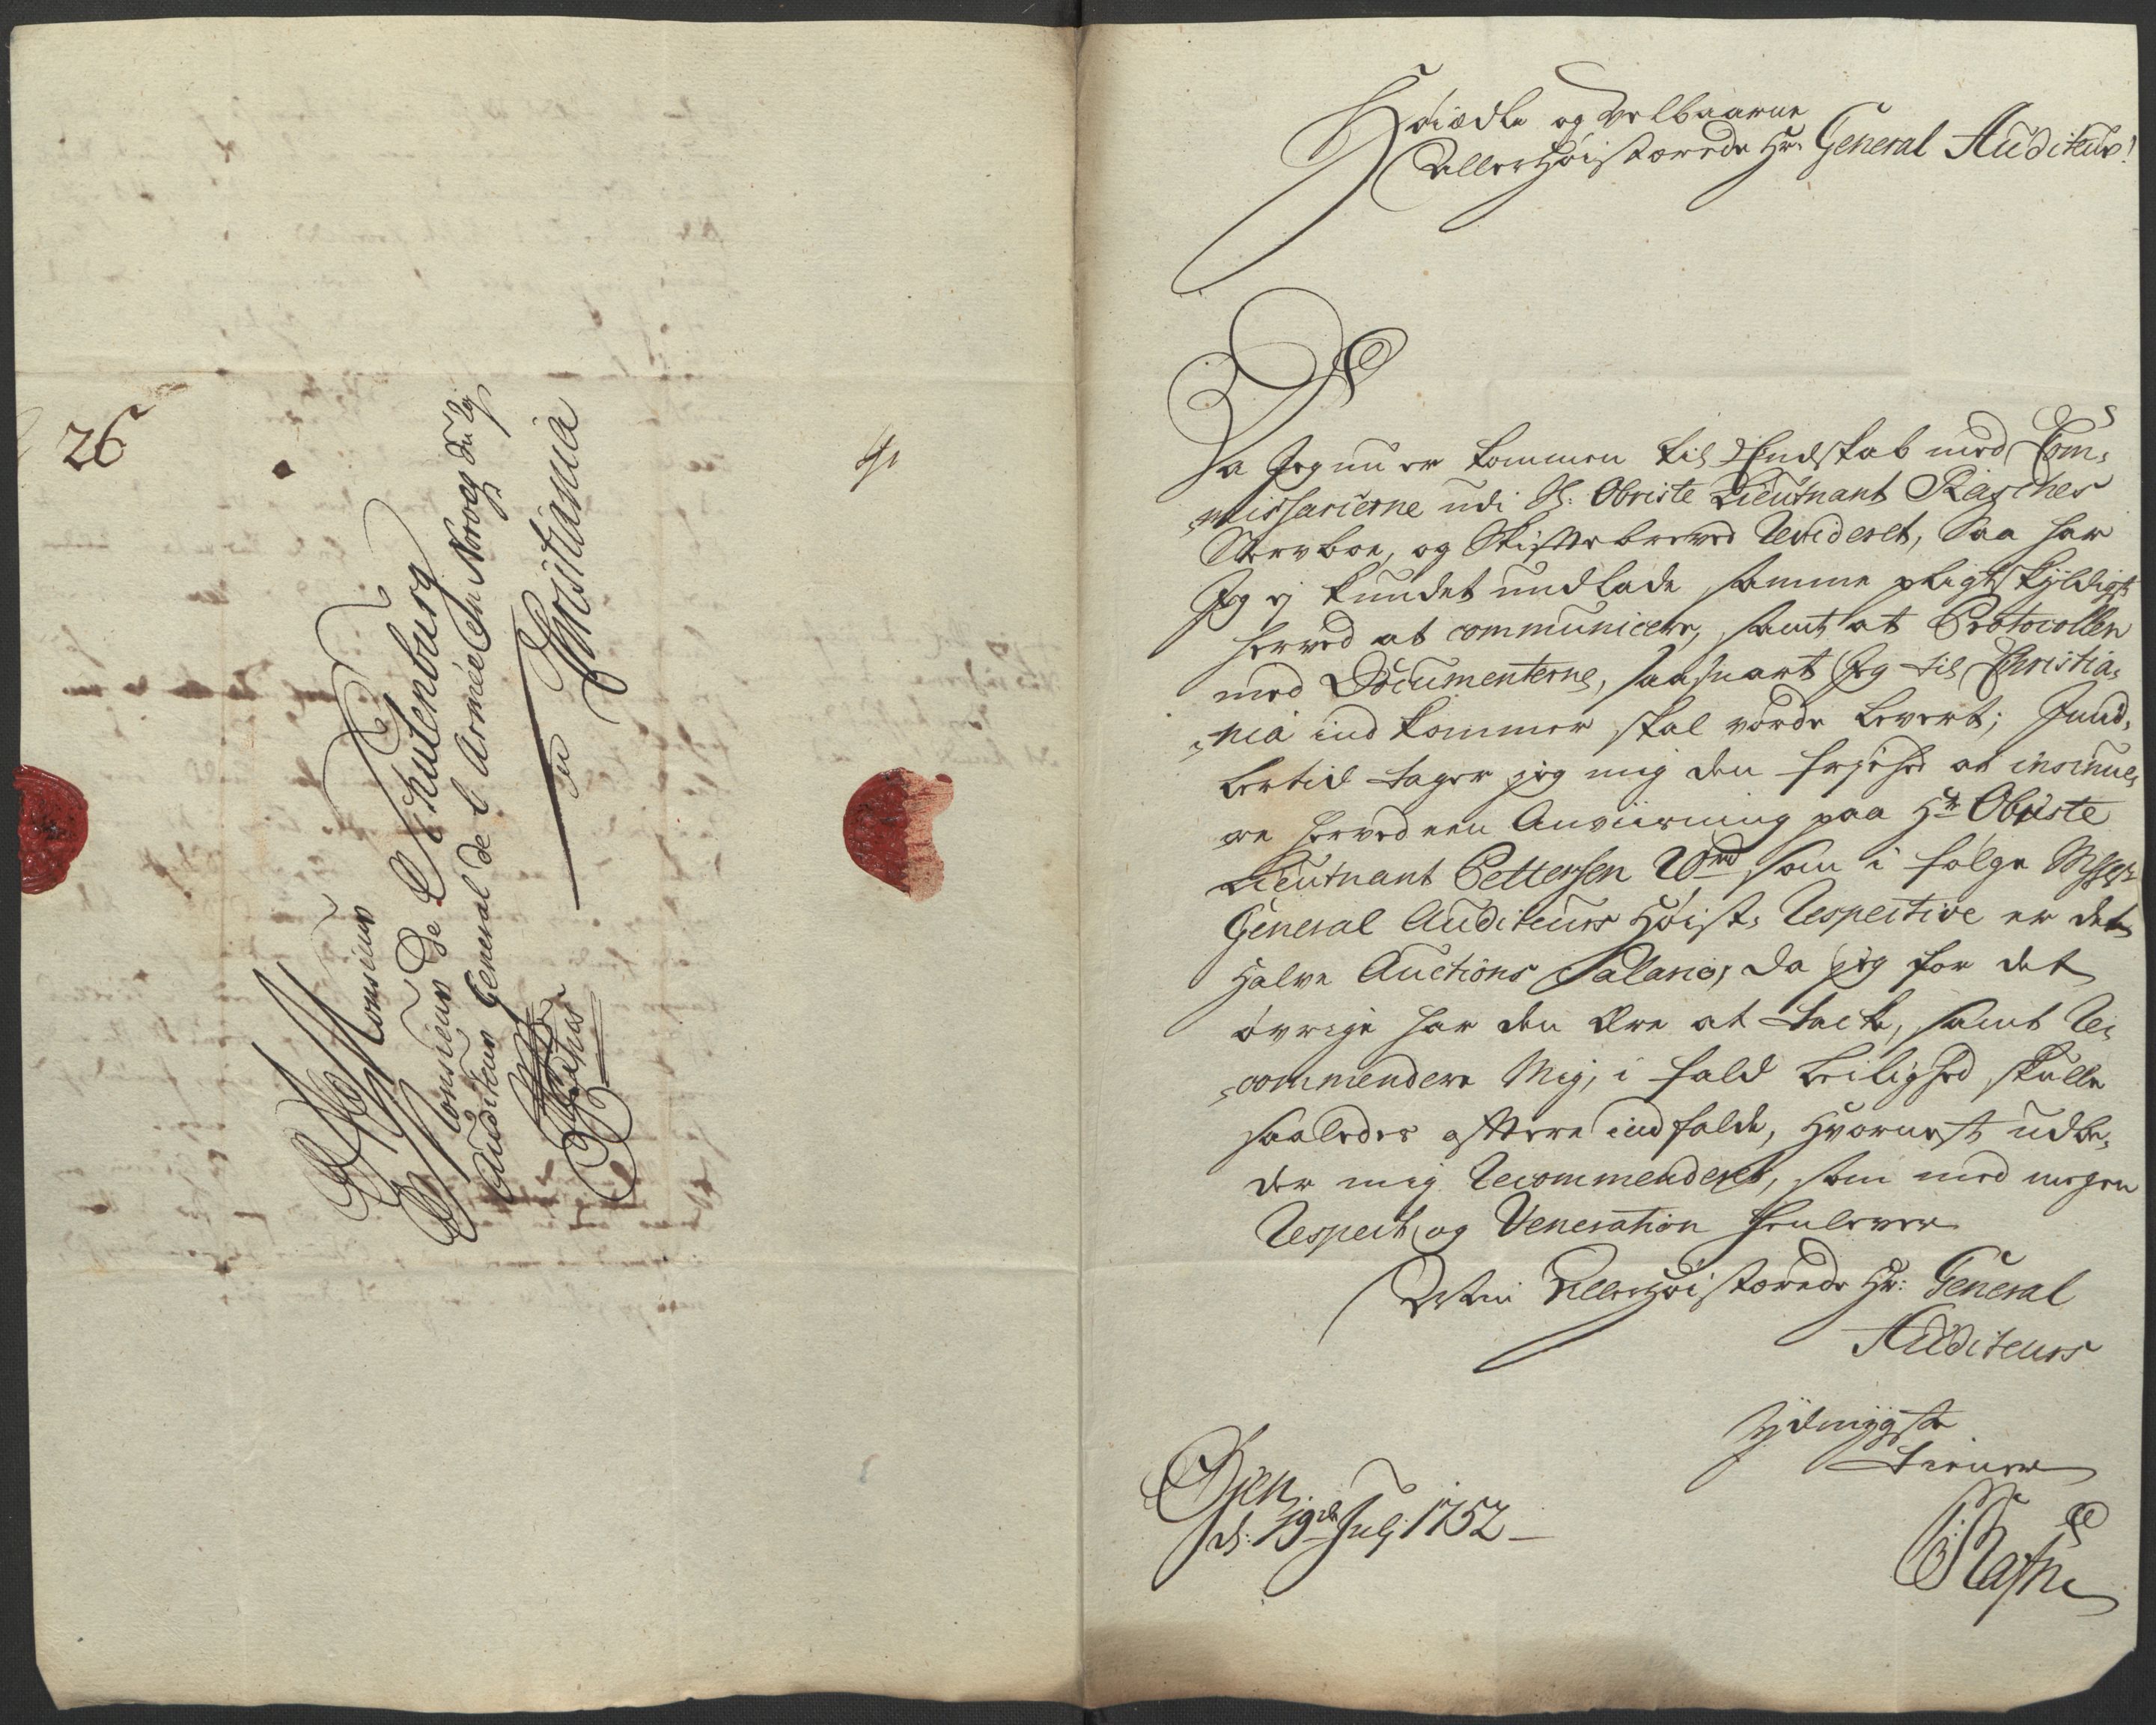 26
A Monsieur
Monsieur de Schulenburg
Auditeur General de l'Armée en Norveg
Christiania
Høiædle og Velbaarne
Allerhøistærede Hr. General Auditeur!
Da Jeg nu er kommen til Endskab med Com-
missarierne udi Sl. Obriste Lieutnant Rasches
Sterboe, og Skiftebrevet Revideret, saa har
Jeg ej kundet undlade samme pligtskyldigst
herved at communicere, samt at Protocollen
med Documenterne, saasnart Jeg til Christia-
nia ind kommer skal vorde levert; Imid-
lertid tager jeg mig den frejhed at insinue-
re herved een Anviisning paa Hr. Obriste
Lieutnant Pettersen som i følge
General Auditeurs Høist. Respective er det
halve Auctions Salario, da jeg for det
øvrige har den Ære at tacke, samt Re-
commendere Mig, i fald Leilighed skulle
saaledes oftere indfalde, hvornest udbe-
der mig Recommenderet, som med megen
Respect og Veneration henlever
Allerhøistærede Hr. General
Auditeurs
ydmygste
tiener
d. 19de Julj 1752